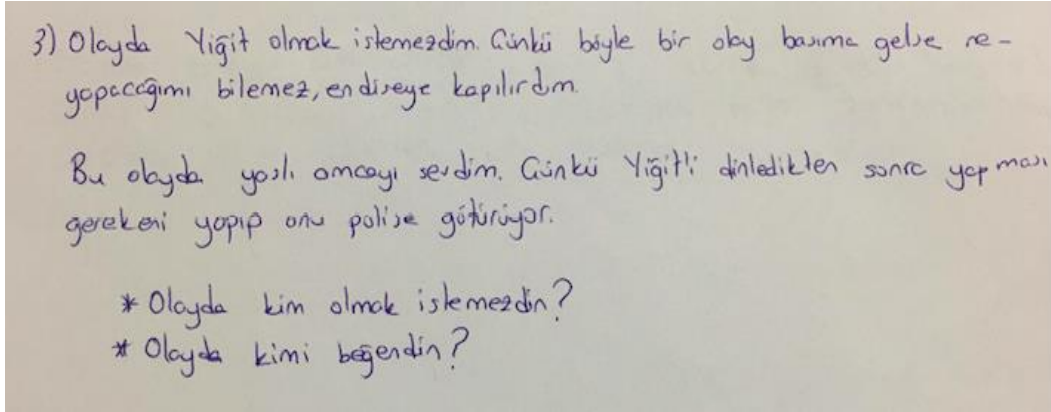 3) Olayda Yiğit olmak istemezdim. Çünkü böyle bir olay başıma gelse ne-
yapacağımı bilemez, endişeye kapılırdım.
Bu olayda yaşlı amcayı sevdim. Çünkü Yiğit'i dinledikten sonra yapması
gerekeni yapıp onu polise götürüyor.
* Olayda kim olmak istemezdin?
* Olayda kimi beğendin?